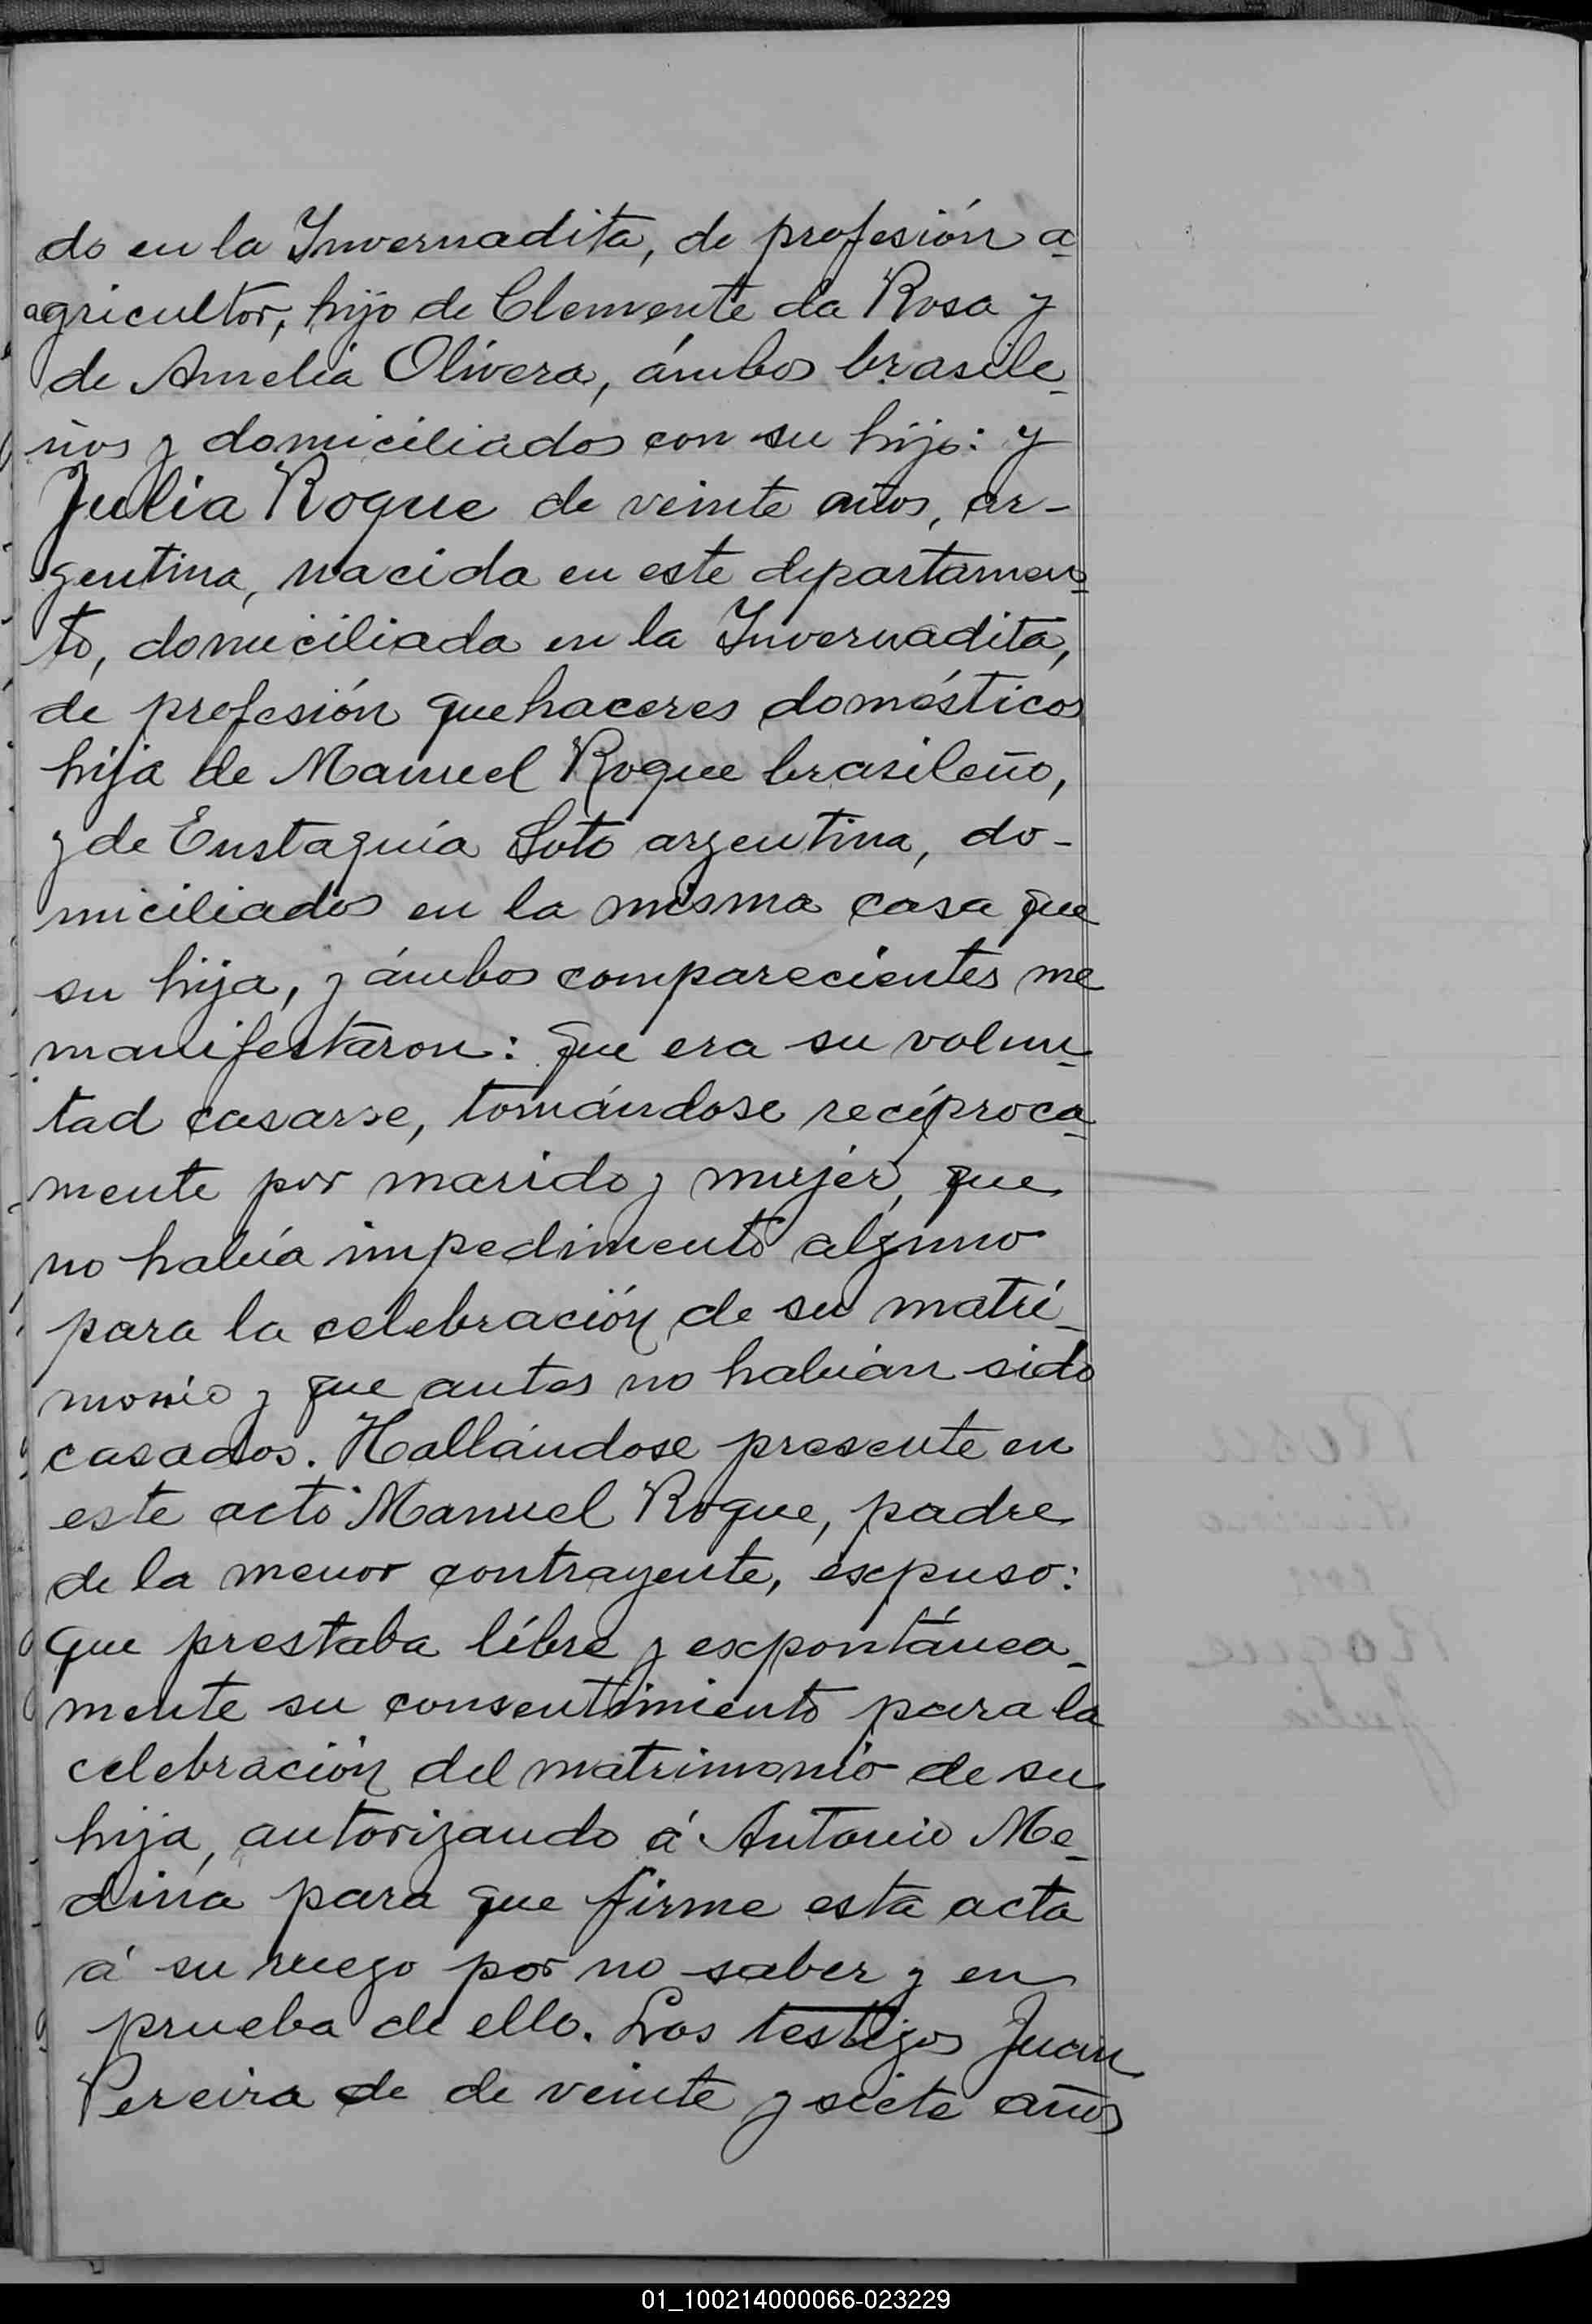 do en la Invernadita, de profesión a-
agricultor, hijo de Clemente da Rosa y
de Amelia Olivera, ámbos brasile-
ños y domiciliados con su hijo: y
Julia Roque de veinte años, ar-
gentina, nacida en este departamen-
to, domiciliada en la Invernadita,
de profesión quehaceres domésticos
hija de Manuel Roque brasileño,
y de Eustaquia Soto argentina, do-
miciliados en la misma casa que
su hija, y ámbos comparecientes me
manifestaron: que era su volun-
tad casarse, tomándose recíproca-
mente por marido y mujer, que
no había impedimento alguno
para la celebración de su matri-
monio y que antes no habían sido
casados. Hallándose presente en
este acto Manuel Roque, padre
de la menor contrayente, expuso:
que prestaba libre y expontánea-
mente su consentimiento para la
celebración del matrimonio de su
hija, autorizando á Antonio Me-
dina para que firme esta acta
á su ruego por no saber y en
prueba de ello. Los testigos Juan
Pereira de de veinte y siete años
01_100214000066-023229